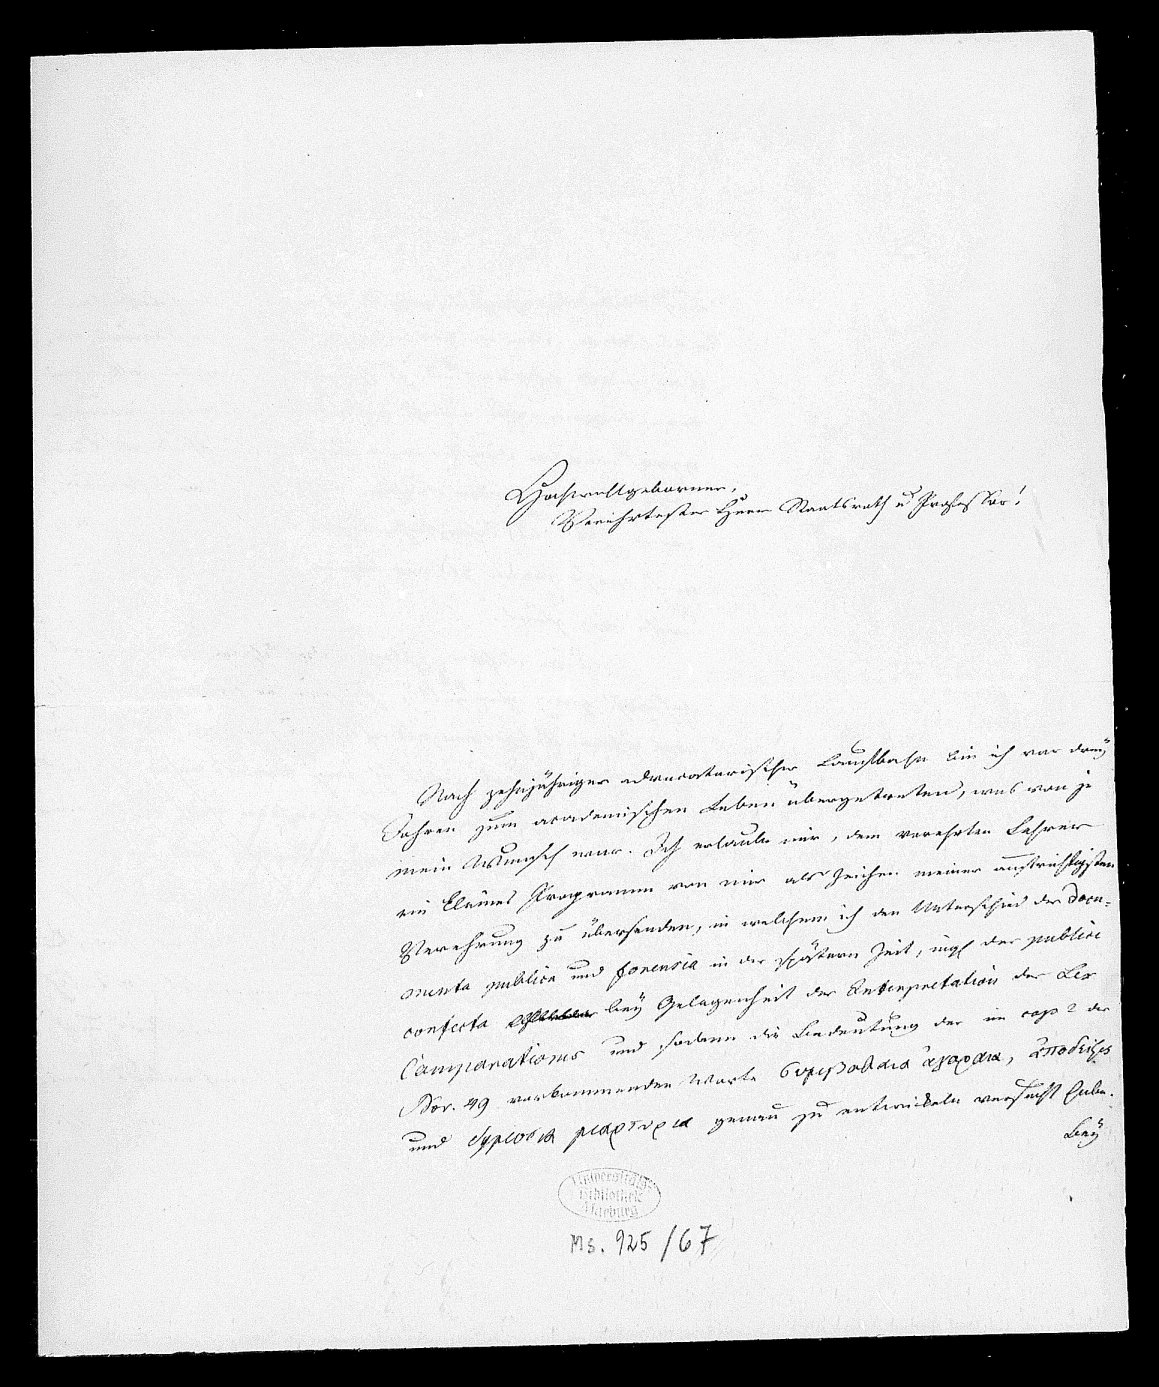 Hochwohlgeborner,
Verehrtester Herr Staatsrath u Professor!
Nach zehnjähriger advocatorischer Laufbahn bin ich vor dreÿ
Jahren zum academischen Leben übergetreten, was von je
mein Wunsch war. Ich erlaube mir, dem verehrten Lehrer
ein kleines Programm von mir als Zeichen meiner aufrichtigsten
Verehrung zu übersenden, in welchem ich den Unterschied der Docu-
menta publica und forensia in der spätern Zeit, insb der publice
confecta beÿ Gelegenheit der Interpretation der Lex
Comparationis und sodann die Bedeutung der im cap 2 der
Nov. 49 vorkommenden Worte συμβολαια ἀγοραια, ἀποδείξεις
und δημοσια μαρτυρια genau zu entwickeln versucht habe.
Beÿ
Universitäts-
Bibliothek
Marburg
Ms. 925/67